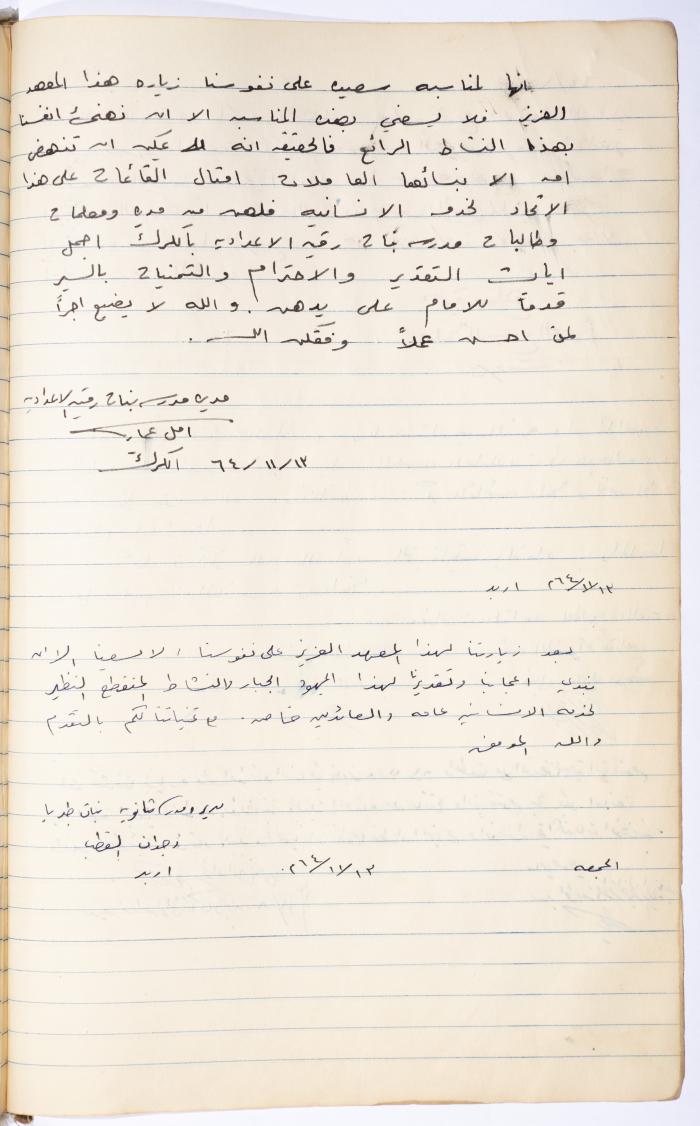 انها لمناسبه سعيده على نفوسنا زياره هذا المعهد
العزيز فلا يسعني بهذه المناسبه الا ان نهنئ انفسنا
بهذا النشاط الرائع فالحقيقه انه لا يمكن ان تنهض
امه الا بنسائها العاملات امثال القائمات على هذا
الاتحاد لخدمه الانسانيه فلهن من مديره ومعلمات
وطالبات مدرسه بنات رقيه الاعداديه بالكرك اجمل
ايات التقدير والاحترام والتمنيات بالسير
قدماً للامام على يدهن. والله لا يضيع اجراً
لمن احسن عملاً وفقكن الله.
مديره مدرسه بنات رقيه الاعداديه
امل
٦٤/١١/١٣ الكرك
٦٤/١١/١٣ اربد
بعد زيارتنا لهذا المعهد العزيز على نفوسنا، لا يسعنا الا ان
نبدي اعجابنا وتقديرنا لهذا المجهود الجبار والنشاط المنقطع النظير
لخدمة الانسانيه عامه والعائدين خاصه. مع تمنياتنا لكم بالتقدم
والله الموفق
ثانويه بنات
القطب
الجمعه ٦٤/١١/١٣ اربد